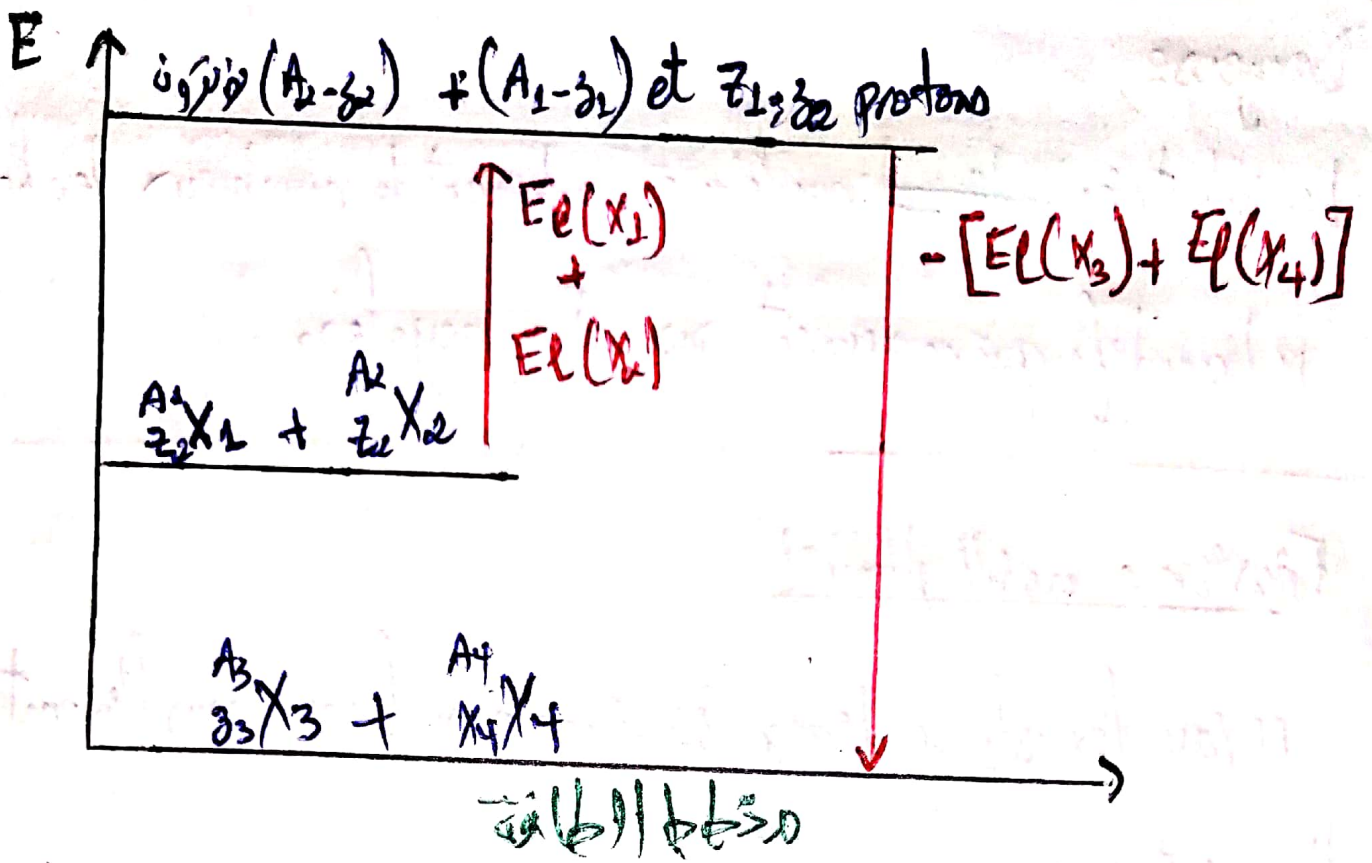 E
نترون (A2-z2) + (A1-z1) et Z1+z2 protons
El(X1)
+
El(X2)
-[El(X3)+ El(X4)]
A1 Z2 X1 + A2 Z2 X2
A3 z3 X3 + A4 X4 X4
مخطط الطاقة